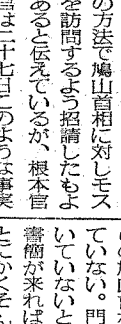 の方法で鳩山首相に対しモス
を訪問するよう招請したもよ
あると伝えているが、根本官
当は二十七日このような事実
ていない。門
いていないと
書簡が来れば
とにかくそん